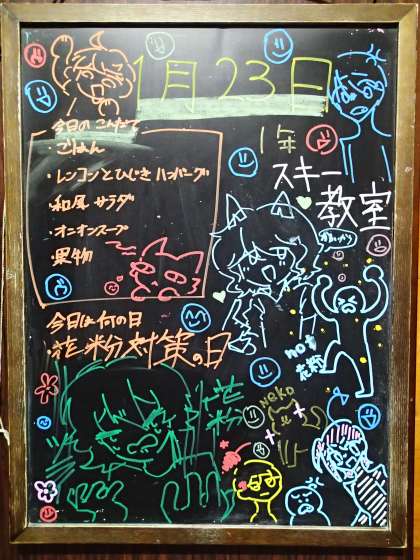 1月23日
今日のこんだて
・ごはん
・レンコンとひじきハンバーグ
・和風サラダ
・オニオンスープ
・果物
1年
スキー
教室
今日は何の日
・花粉対策の日
no more
花粉
花粉
NeKO